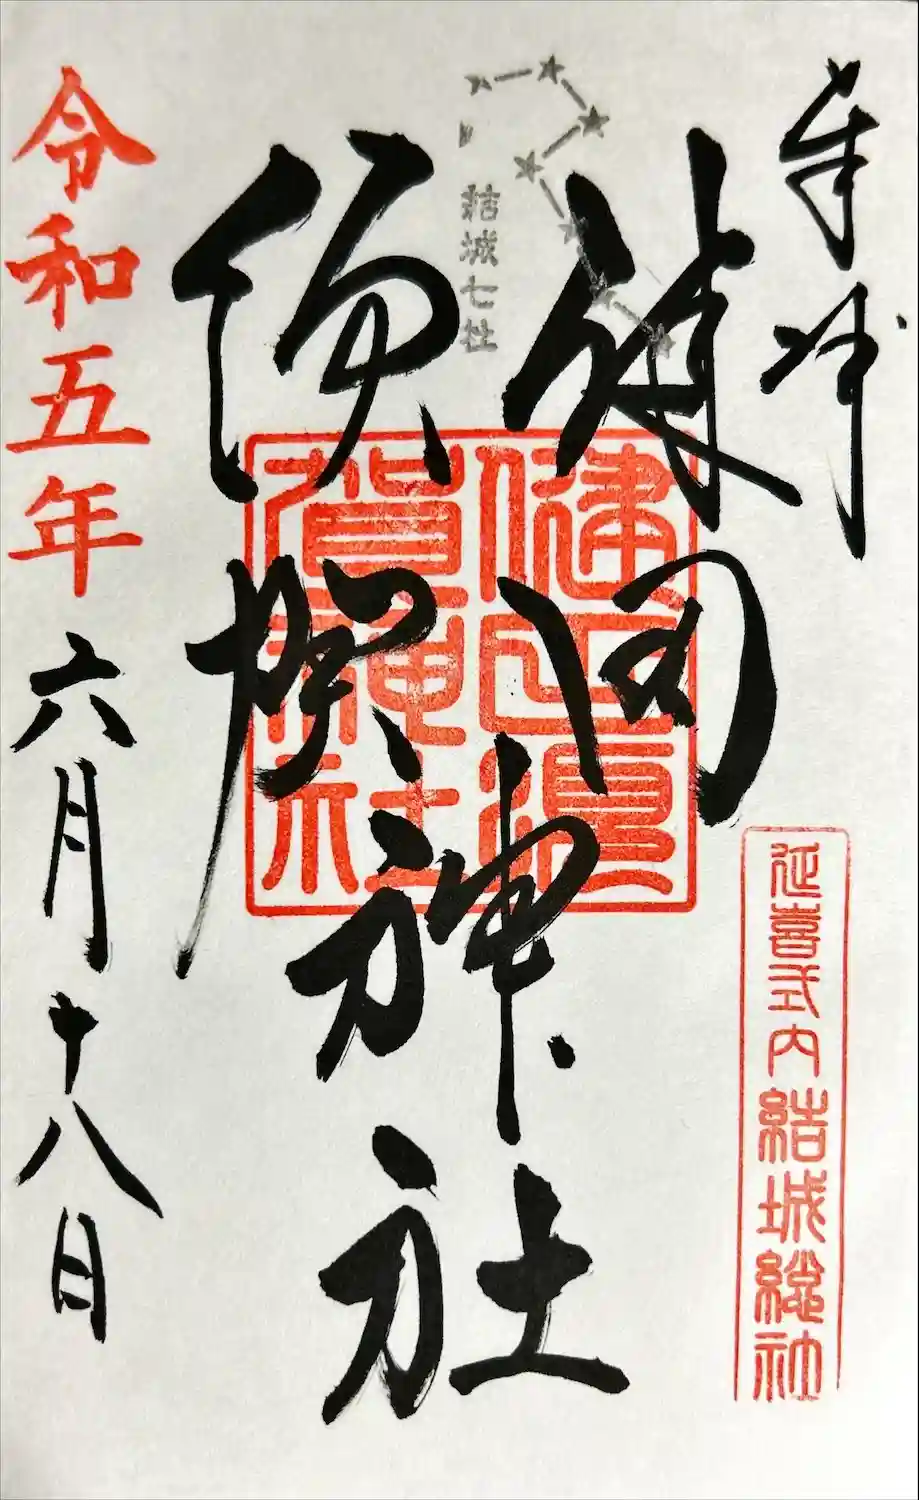 奉拝
延喜式内 結城総社
健田
須賀
神社
結城七社
健田須
賀神社
令和五年六月十八日